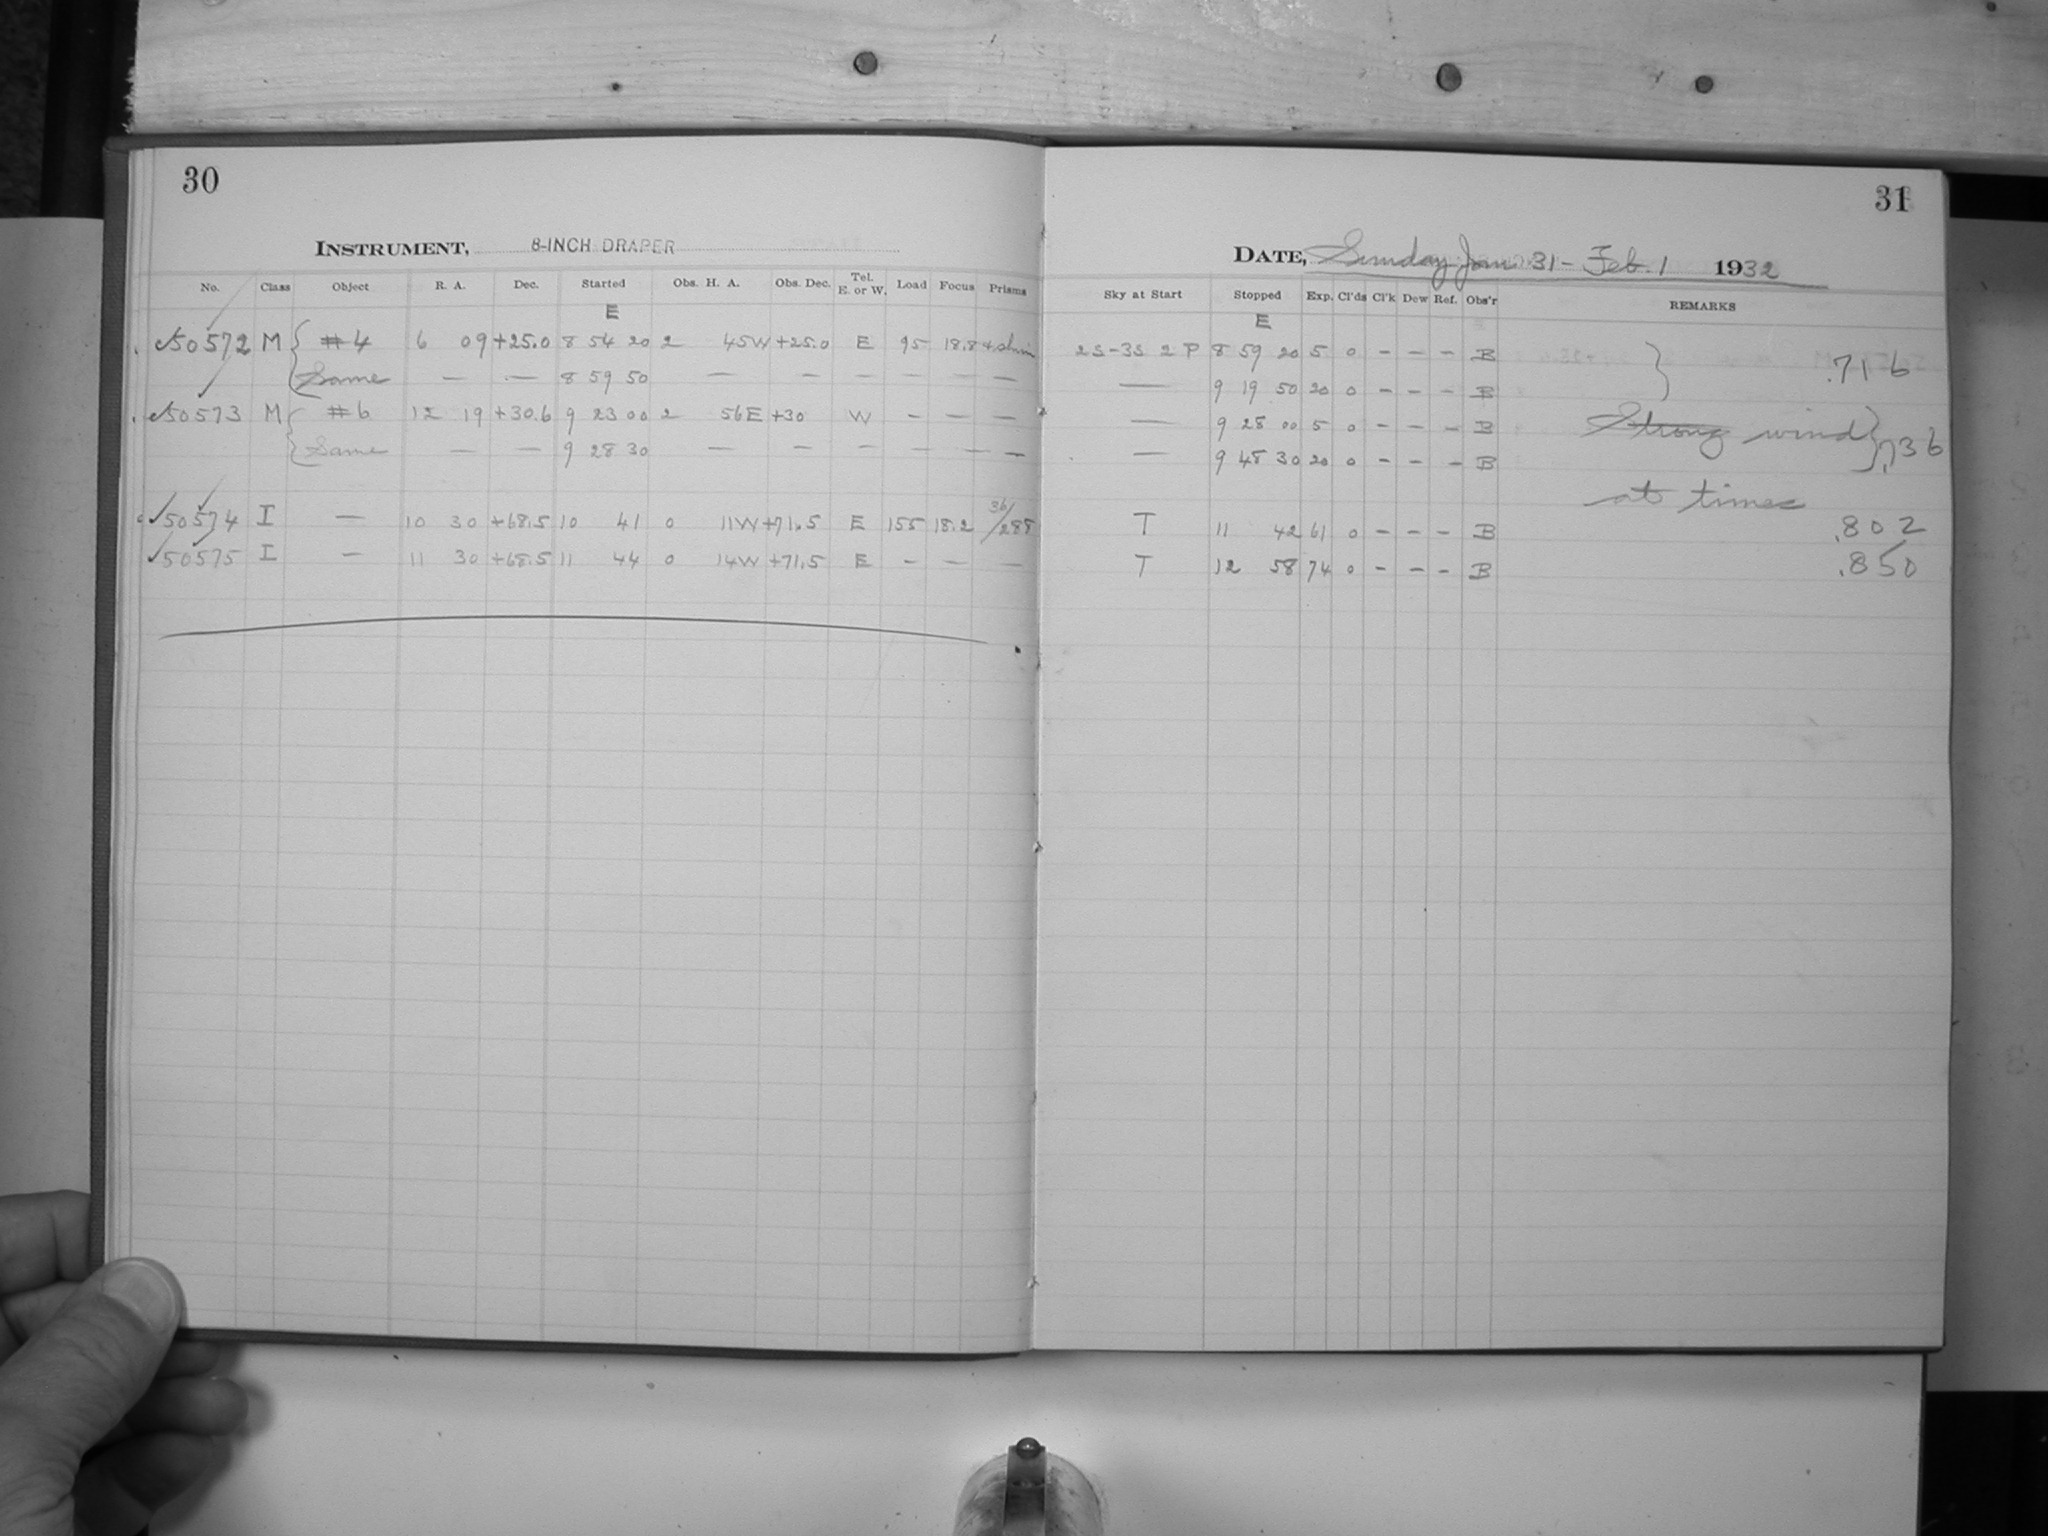 30
INSTRUMENT, 8-INCH DRAPER
No. Class Object R. A. Dec. Started Obs. H. A. Obs. Dec. Tel. E. or W. Load Focus Prisms
E
50572 M { #4 6 09 +25.0 8 54 20 2 45W +25.0 E 95 18.8
Same — — 8 59 50 — — — — — —
50573 M { #6 12 19 +30.6 9 23 00 2 56E +30 W — — —
Same — — 9 28 30 — — — — — —
50574 I — 10 30 +68.5 10 41 0 11W +71.5 E 155 18.2 36/288
50575 I — 11 30 +68.5 11 44 0 14W +71.5 E — — —
31
DATE, Sunday Jan 31 - Feb. 1 1932
Sky at Start Stopped Exp. Cl'ds Cl'k Dew Ref. Obs'r REMARKS
E
2S-3S 2 P 8 59 20 5 0 - - - B } .716
— 9 19 50 20 0 - - - B
— 9 28 00 5 0 - - - B Strong wind } .736
— 9 48 30 20 0 - - - B
at times
T 11 42 61 0 - - - B .802
T 12 58 74 0 - - - B .850